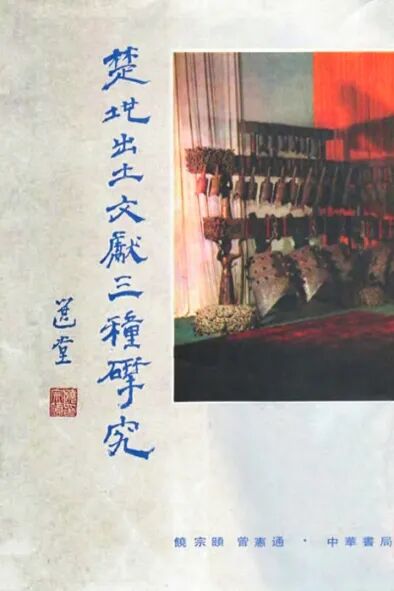 楚地出土文獻三種揅究
選堂
饒宗頤 曾憲通 · 中華書局